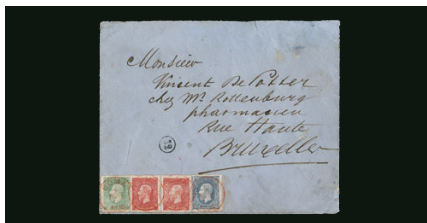 Monsieur
Vincent De Potter
chez Mr Rottenburg
pharmacien
Rue Haute
Bruxelles